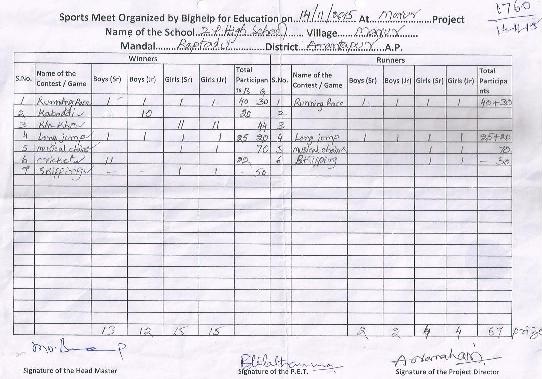 1760
14-11-15
Sports Meet Organized by Bighelp for Education on 14/11/2015 At Marur Project
Name of the School Z.P. High School Village Marur
Mandal Raptadu District Anantapur A.P.
Winners Runners
S.No. Name of the Contest / Game Boys (Sr) Boys (Jr) Girls (Sr) Girls (Jr) Total Participan ts/B G S.No. Name of the Contest / Game Boys (Sr) Boys (Jr) Girls (Sr) Girls (Jr) Total Participa nts
1 Running Race 1 1 1 1 40 30 1 Running Race 1 1 1 1 40+30
2 Kabaddi 10 20 2
3 Kho Kho 11 11 44 3
4 Long jump 1 1 1 1 25 20 4 Long jump 1 1 1 1 25+20
5 musical chairs 1 1 70 5 musical chairs 1 1 70
6 cricket 11 22 6 Skipping 1 1 - 50
7 Skipping - 1 1 - 50
13 12 15 15 2 2 4 4 67 prizes
Signature of the Head Master Signature of the P.E.T. Signature of the Project Director